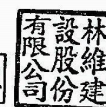 林維建
設股份
有限公司